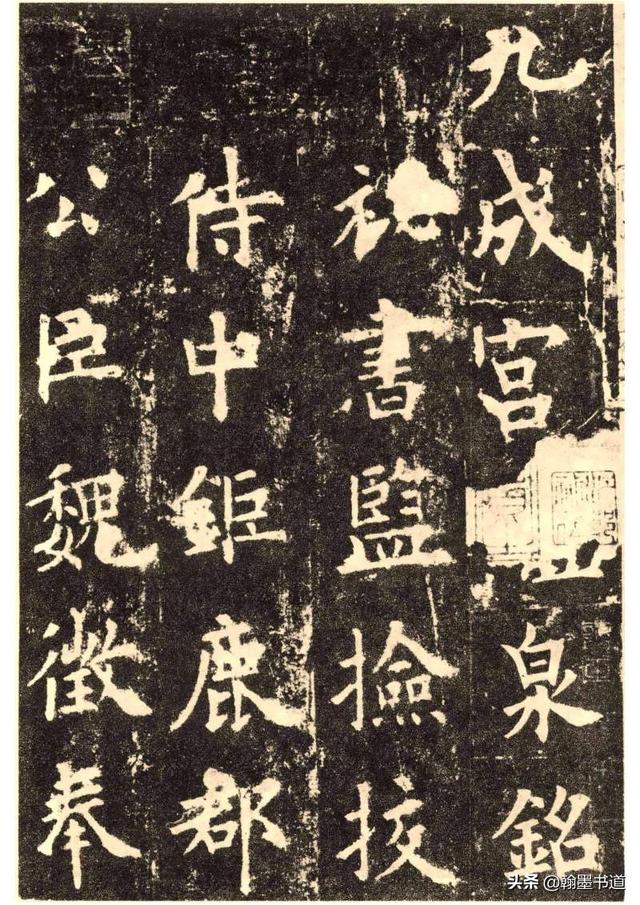 九成宮泉銘
祕書監撿挍
侍中鉅鹿郡
公臣魏徵奉
头条 @翰墨书道